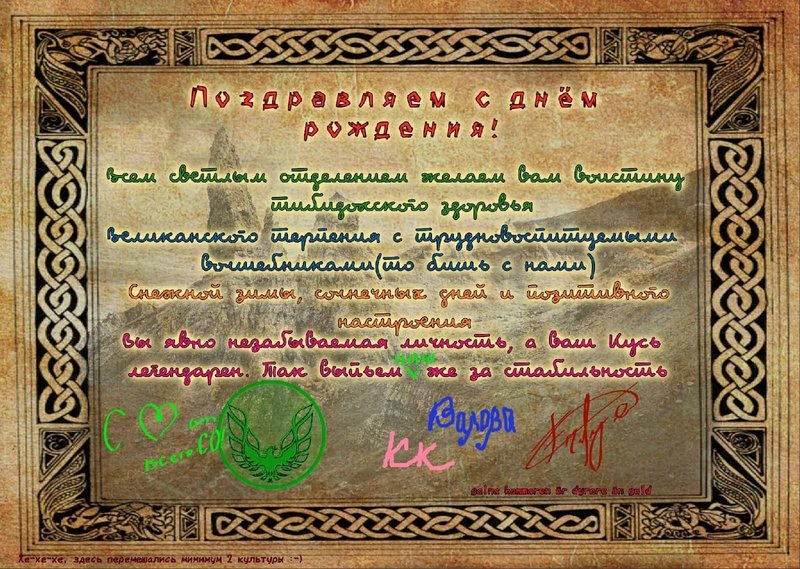 Поздравляем с днём
рождения!
всем светлым отделением желаем вам воистину
тибидохского здоровья
великанского терпения с трудновоспитуемыми
волшебниками(то бишь с нами)
Снежной зимы, солнечных дней и позитивного
настроения
вы явно незабываемая личность, а ваш Кусь
легендарен. Так выпьем же за стабильность
С от
всего СО
Валова
КК
Хе-хе-хе, здесь перемешались минимум 2 культуры :-)